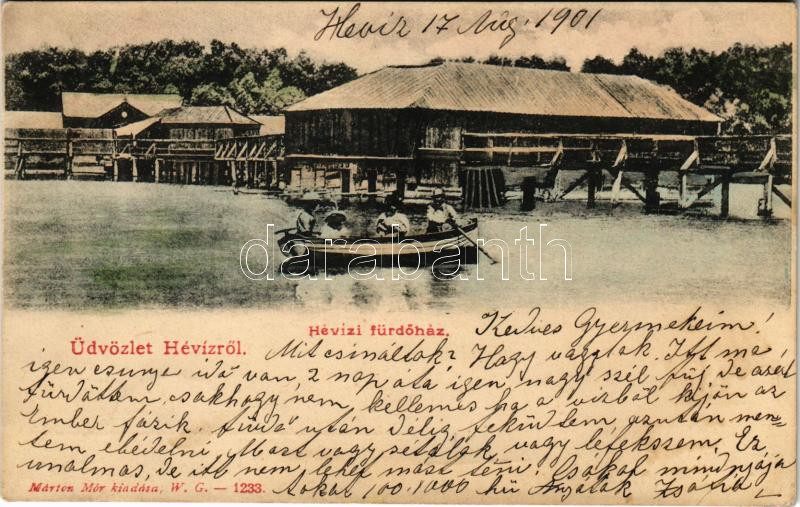 Hevíz 17 Aug. 1901
darabanth
Hévizi fürdőház.
Üdvözlet Hévízről.
Kedves Gyermekeim!
Mit csináltok? Hogy vagytok. Itt ma
igen csunya idő van, 2 nap óta igen nagy szél fúj de azért
fürdöttem, csakhogy nem kellemes ha a vizből kijön az
Ember fázik. fürdő után délig feküdtem azután men-
tem ebédelni, Most vagy sétálok vagy lefekszem. Ez
unalmas, de itt nem lehet mást tenni. Csókol mindnyája
tokat 100.1000 hü Anyátok Zsófia
Márton Mór kiadása, W. G. — 1233.